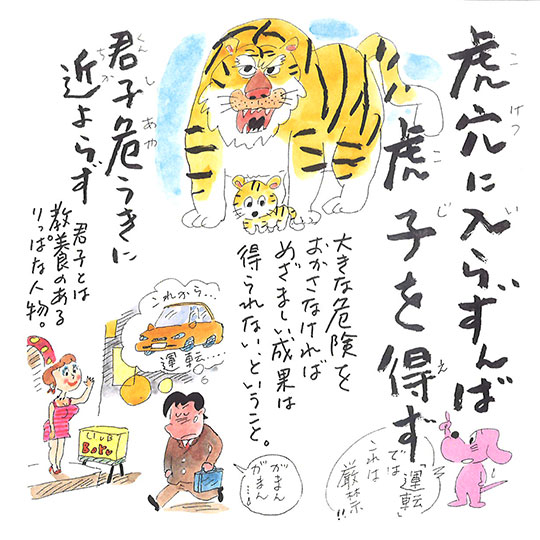 虎穴に入らずんば
こ
けつ
い
虎子を得ず
こ
じ
え
大きな危険を
おかさなければ
めざましい成果は
得られない、ということ。
君子危うきに
くんし
あや
近よらず
ちか
君子とは
教養のある
りっぱな人物。
これから…
運転…
CLUB
がまん
がまん…
「運転」
では
これは
厳禁!!